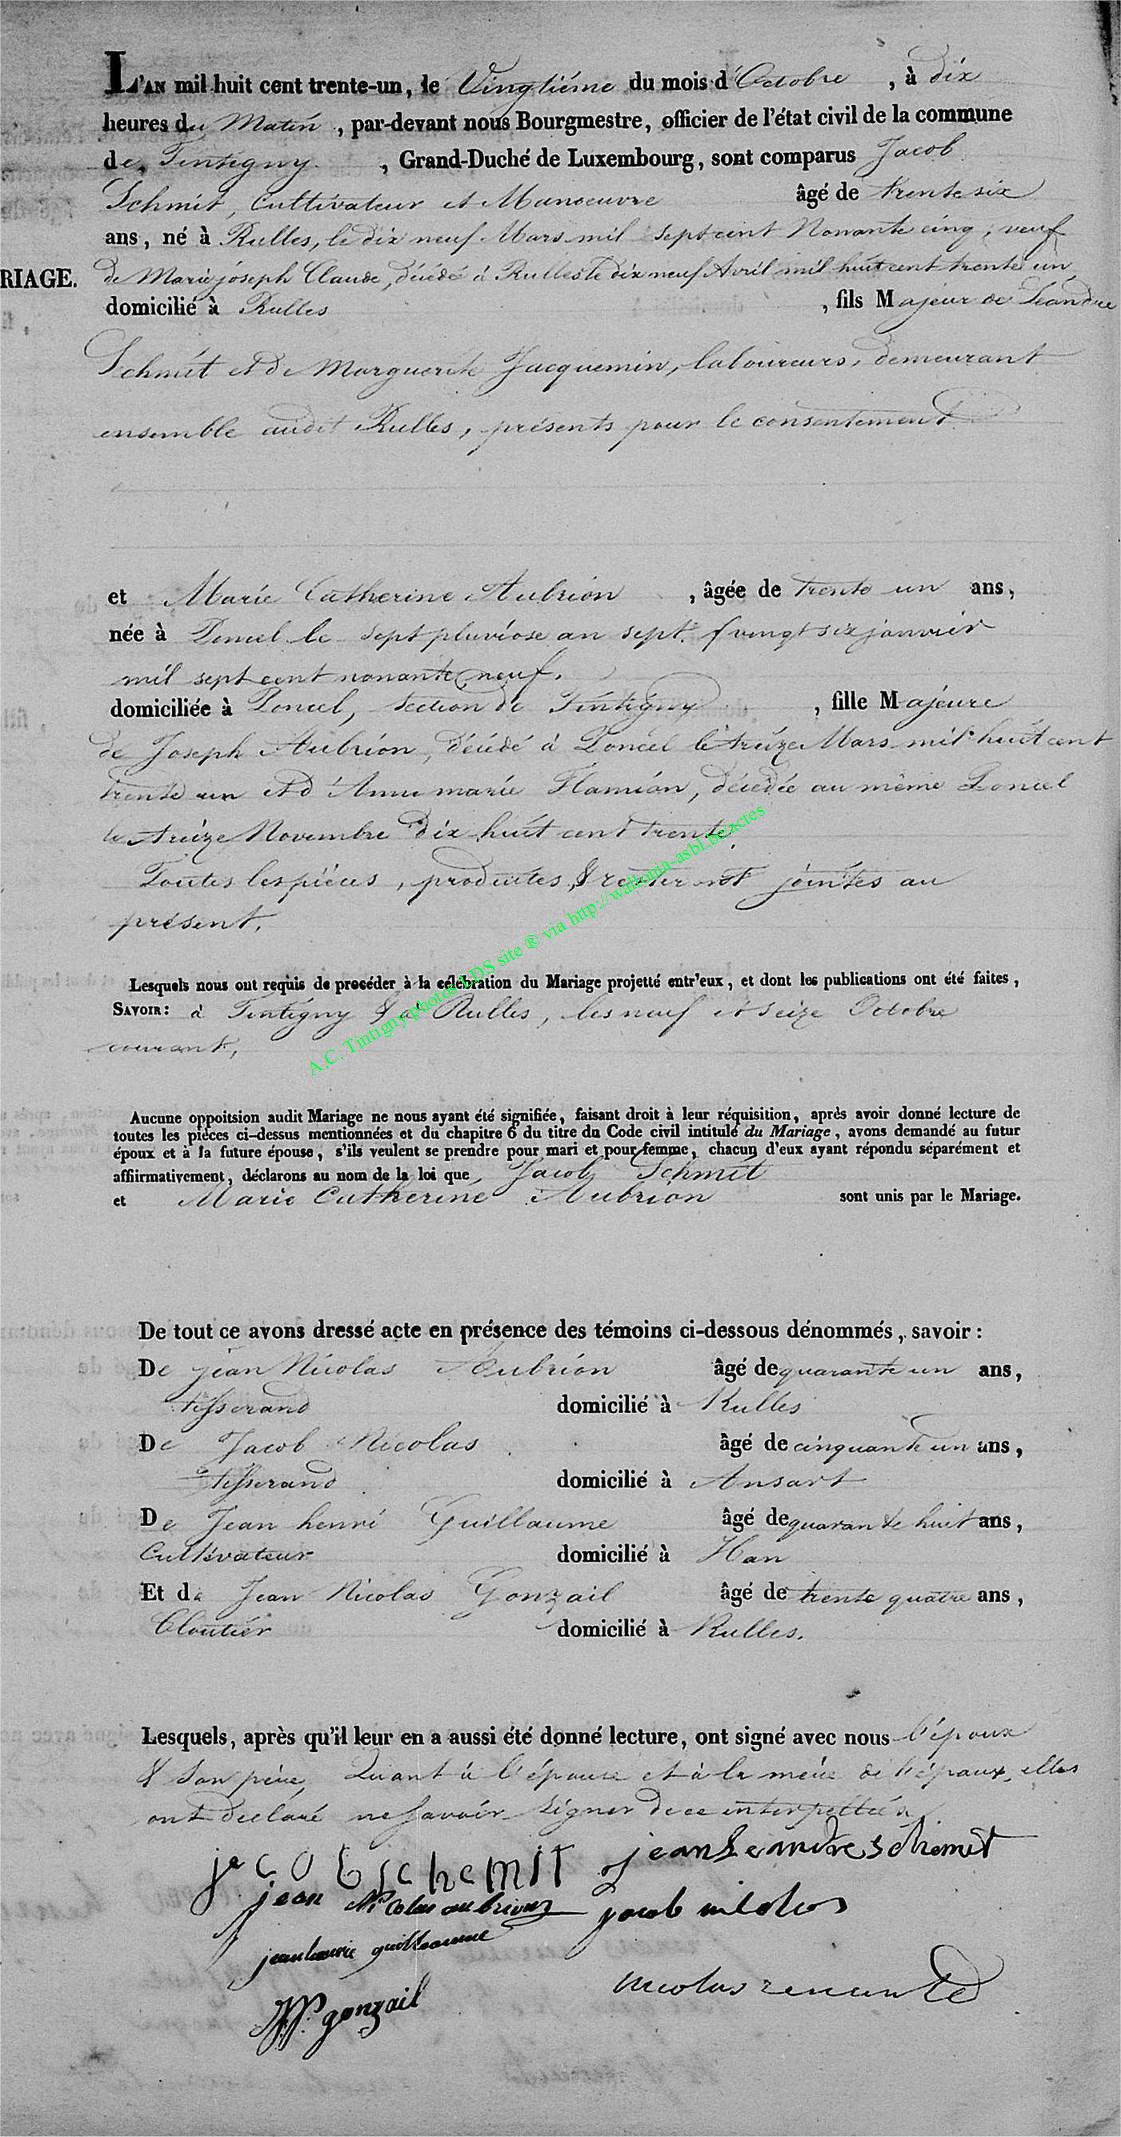 L'AN mil huit cent trente-un, le Vingtiéme du mois d'Octobre, à dix
heures du Matin, par-devant nous Bourgmestre, officier de l'état civil de la commune
de Tintigny, Grand-Duché de Luxembourg, sont comparus Jacob
Schmit, Cultivateur et Manoeuvre âgé de trente six
ans, né à Rulles, le dix neuf Mars mil sept cent Nonante cinq, veuf
RIAGE. de Marie joseph Claude, décédé à Rulles le dix neuf Avril mil huit cent trente un
domicilié à Rulles, fils Majeur de Leandre
Schmit et de Marguerite Jacquemin, laboureurs, demeurant
ensemble audit Rulles, présents pour le consentement
et Marie Catherine Aubrion, âgée de trente un ans,
née à Poncel le sept pluviose an sept (vingt six janvier
mil sept cent nonante neuf.)
domiciliée à Poncel, section de Tintigny, fille Majeure
de Joseph Aubrion, décédé à Poncel le treize Mars mil huit cent
trente un et d'Anne marie Flamion, décédée au même Poncel
le treize Novembre dix huit cent trente.
Toutes les piéces, produites, & rester ont jointes au
présent.
Lesquels nous ont requis de procéder à la célébration du Mariage projetté entr'eux, et dont les publications ont été faites,
SAVOIR: à Tintigny & à Rulles, les neuf et seize Octobre
courant,
Aucune oppoitsion audit Mariage ne nous ayant été signifiée, faisant droit à leur réquisition, après avoir donné lecture de
toutes les pièces ci-dessus mentionnées et du chapitre 6 du titre du Code civil intitulé du Mariage, avons demandé au futur
époux et à la future épouse, s'ils veulent se prendre pour mari et pour femme, chacun d'eux ayant répondu séparément et
affiirmativement, déclarons au nom de la loi que Jacob Schmit
et Marie Catherine Aubrion sont unis par le Mariage.
De tout ce avons dressé acte en présence des témoins ci-dessous dénommés, savoir:
De jean Nicolas Aubrion âgé de quarante un ans,
tisserand domicilié à Rulles
De Jacob Nicolas âgé de cinquante un ans,
tisserand domicilié à Ansart
De Jean henri Guillaume âgé de quarante huit ans,
Cultivateur domicilié à Han
Et de Jean Nicolas Gonzail âgé de trente quatre ans,
Cloutier domicilié à Rulles.
Lesquels, après qu'il leur en a aussi été donné lecture, ont signé avec nous l'époux
& Son pére, Quant à l'épouse et à la mére de l'époux, elles
ont declaré ne Savoir Signer de ce interpellées
jacob schemit jean Leandre schemit
jean Nicolas aubrion jacob nicolas
jean henrie guilleaume
nicolas
gonzail
A.C. Tintigny photos LDS site ® via http://wallonia-asbl.be/actes